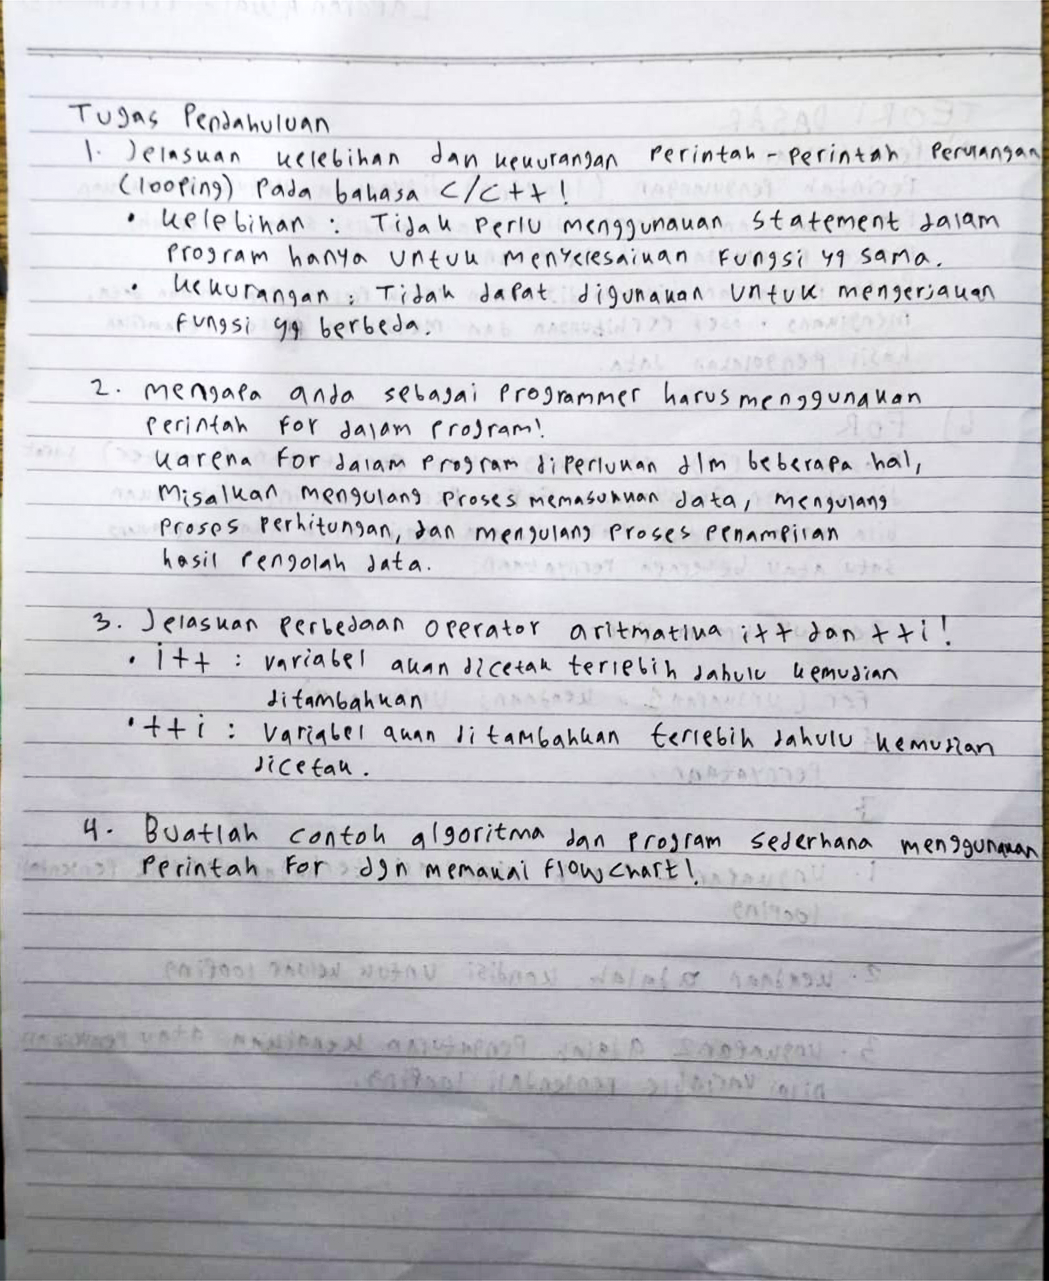 Tugas Pendahuluan
1. Jelaskan kelebihan dan kekurangan perintah-perintah perulangan
(looping) pada bahasa c/c++!
• kelebihan : Tidak perlu menggunakan statement dalam
program hanya untuk menyelesaikan fungsi yg sama.
• kekurangan : Tidak dapat digunakan untuk mengerjakan
fungsi yg berbeda.
2. mengapa anda sebagai programmer harus menggunakan
perintah for dalam program!
karena for dalam program diperlukan dlm beberapa hal,
misalkan mengulang proses memasukkan data, mengulang
proses perhitungan, dan mengulang proses penampilan
hasil pengolah data.
3. Jelaskan perbedaan operator aritmatika i++ dan ++i!
• i++ : variabel akan dicetak terlebih dahulu kemudian
ditambahkan
• ++i : variabel akan ditambahkan terlebih dahulu kemudian
dicetak.
4. Buatlah contoh algoritma dan program sederhana menggunakan
perintah for dgn memakai flowchart!